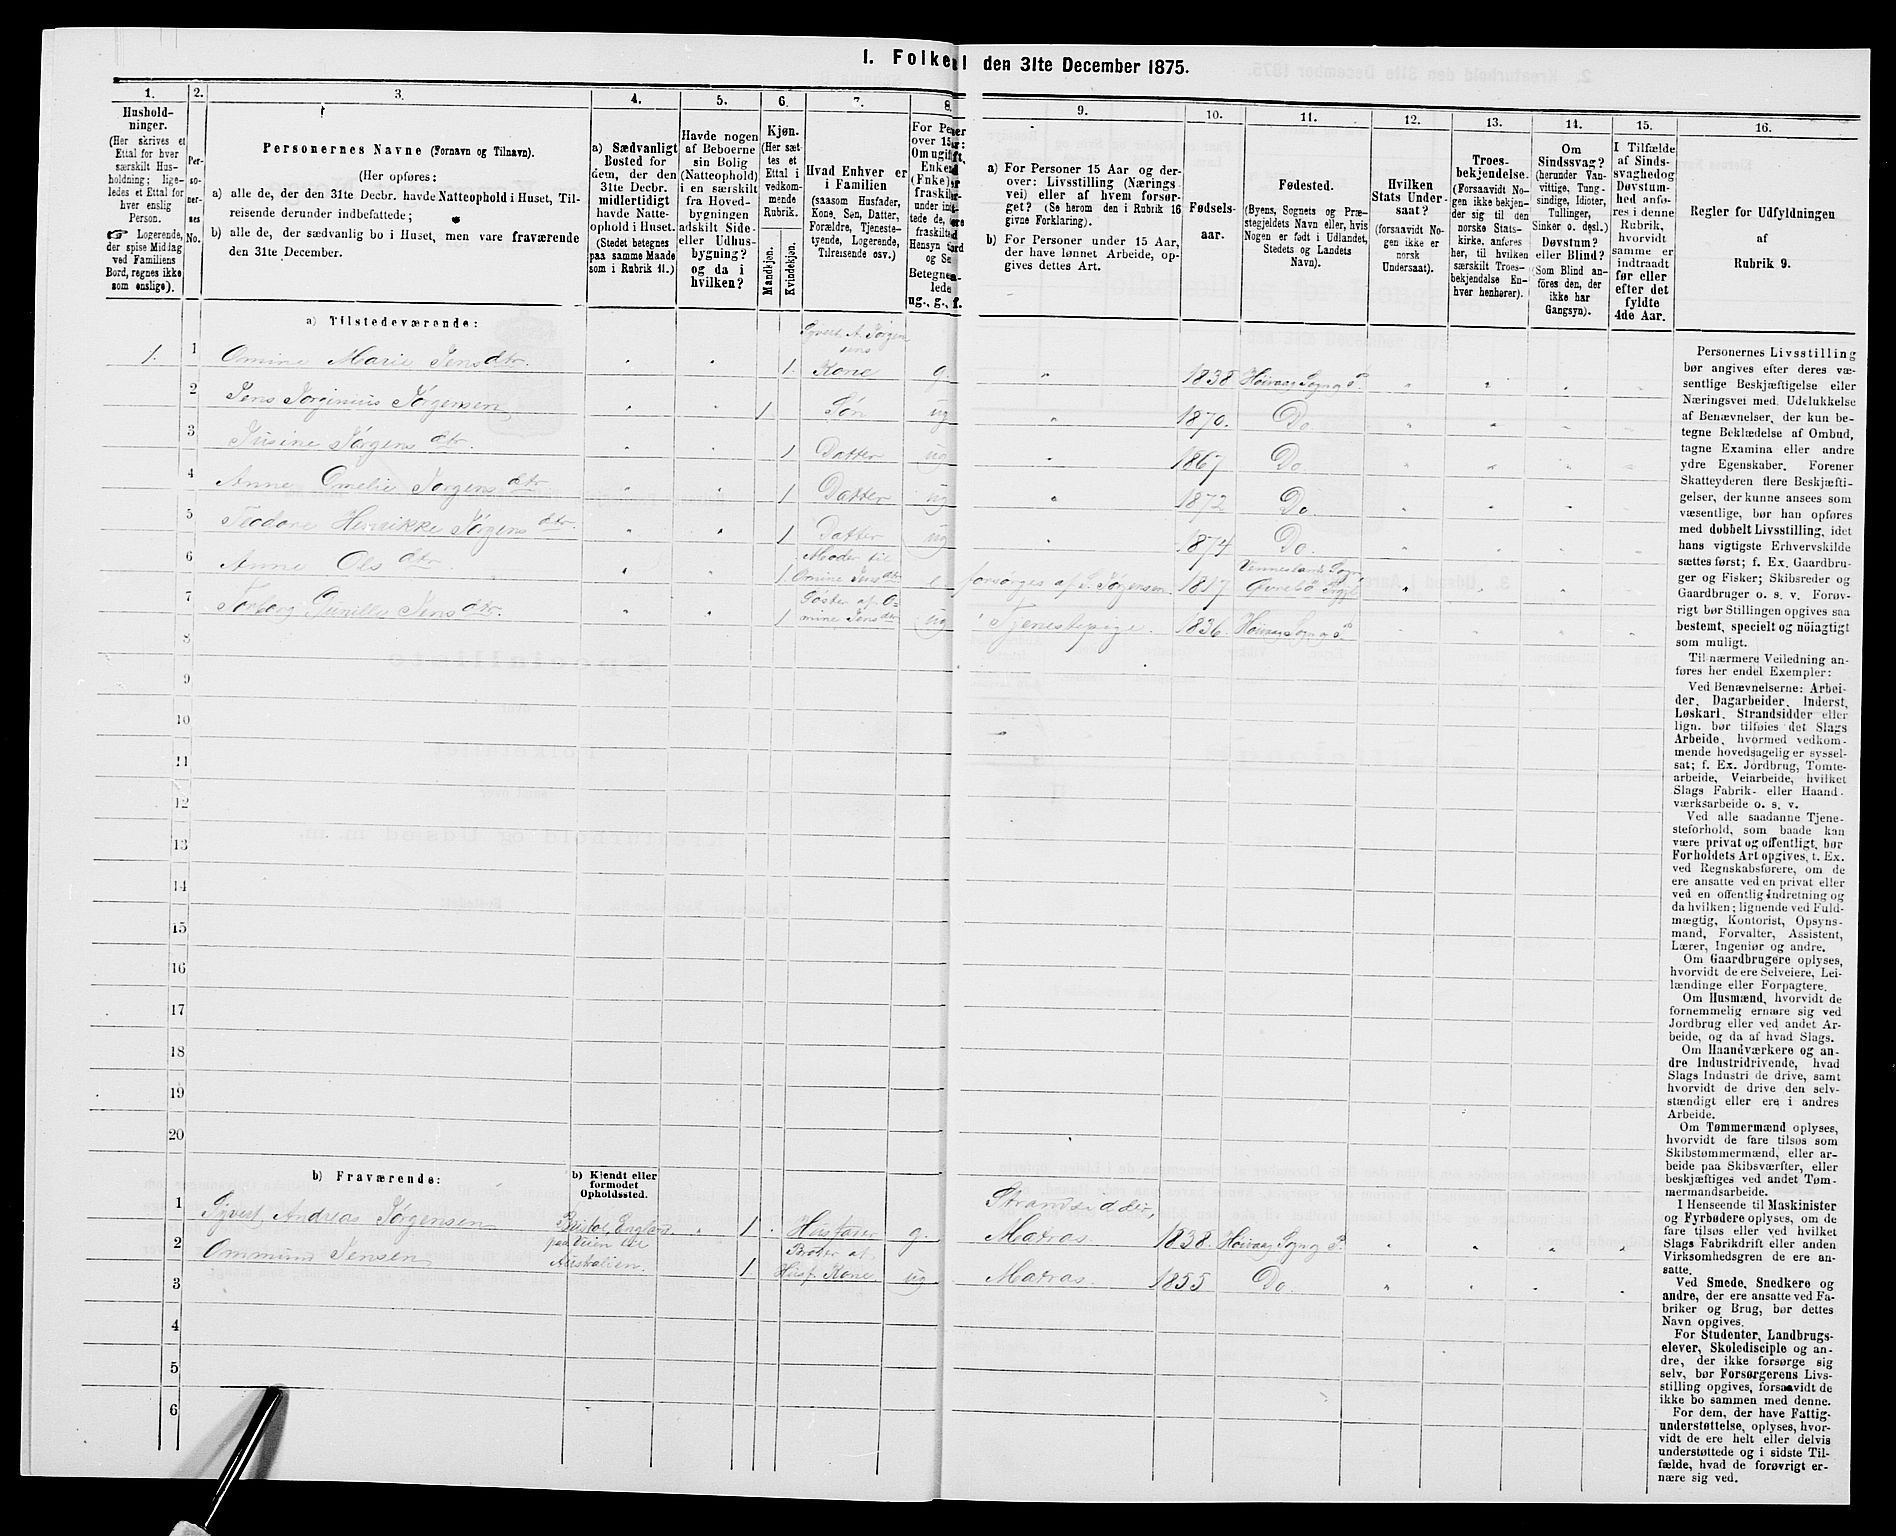 1. Folke den 31te December 1875.
1. 2. 3. 4. 5. 6. 7. 8. 9. 10. 11. 12. 13. 14. 15. 16.
Hushold-
ninger.
(Her skrives et
Ettal for hver
særskilt Hus-
holdning; lige-
ledes et Ettal for
hver enslig
Person.
☞ Logerende,
der spise Middag
ved Familiens
Bord, regnes ikke
som enslige).
Per-
so-
ner-
nes
No.
Personernes Navne (Fornavn og Tilnavn).
(Her opføres:
a) alle de, der den 31te Decbr. havde Natteophold i Huset, Til-
reisende derunder indbefattede;
b) alle de, der sædvanlig bo i Huset, men vare fraværende
den 31te December.
a) Sædvanligt
Bosted for
dem, der den
31te Decbr.
midlertidigt
havde Natte-
ophold i Huset.
(Stedet betegnes
paa samme Maade
som i Rubrik 11.)
Havde nogen
af Beboerne
sin Bolig
(Natteophold)
i en særskilt
fra Hoved-
bygningen
adskilt Side-
eller Udhus-
bygning?
og da i
hvilken?
Kjøn.
(Her sæt-
tes et
Ettal i
vedkom-
mende
Rubrik.
Mandkjøn.
Kvindekjøn.
Hvad Enhver er
i Familien
(saasom Husfader,
Kone, Søn, Datter,
Forældre, Tjeneste-
tyende, Logerende,
Tilreisende osv.)
For Pe ner
over 15 r:
Om ugift,
Enke
(Enke)
fraskil
under in
tede de,
fraskilt
Hensyn
og Se
Betegne
lede
ug., g., f.
a) For Personer 15 Aar og der-
over: Livsstilling (Nærings-
vei) eller af hvem forsør-
get? (Se herom den i Rubrik 16
givne Forklaring).
b) For Personer under 15 Aar,
der have lønnet Arbeide, op-
gives dettes Art.
Fødsels-
aar.
Fødested.
(Byens, Sognets og Præ-
stegjeldets Navn eller, hvis
Nogen er født i Udlandet,
Stedets og Landets
Navn).
Hvilken
Stats Under-
saat?
(forsaavidt No-
gen ikke er
norsk
Undersaat).
Troes-
bekjendelse.
(Forsaavidt No-
gen ikke bekjen-
der sig til den
norske Stats-
kirke, anføres
her, til hvilken
særskilt Troes-
bekjendelse En-
hver henhører).
Om
Sindssvag?
(herunder Van-
vittige, Tung-
sindige, Idioter,
Tullinger,
Sinker o. desl.)
Døvstum?
eller Blind?
(Som Blind an-
føres den, der
ikke har
Gangsyn).
I Tilfælde
af Sinds-
svaghed og
Døvstum-
hed anfø-
res i denne
Rubrik,
hvorvidt
samme er
indtraadt
før eller
efter det
fyldte
4de Aar.
Regler for Udfyldningen
af
Rubrik 9.
a) Tilstedeværende:
1. 1 Omine Marie Jensdtr. 1. Syvert A. Jørgen
sens
Kone g. 1838 Høivaag Sogn P.
2 Jens Jørginius Jørgensen 1 Søn ug 1870. Do.
3 Jusine Jørgensdtr. 1 Datter ug 1867 Do.
4 Anne Omelie Jørgensdtr 1 Datter ug 1872 Do.
5 Teodore Henrikke Jørgensdtr. 1 Datter ug 1874 Do.
6 Anne Olsdtr 1 Moder til
Omine Jensdtr e. forsørges af S. Jørgensen 1817 Venneslands Sogn
Øvrebø Prgjl
7 Torborg Gunille Jensdtr. 1 Søster af O-
mine Jensdtr ug Tjenestepige. 1836. Høivaag Sogn P
8
9
10
11
12
13
14
15
16
17
18
19
20
b) Fraværende:
b) Kjendt eller
formodet
Opholdssted.
1 Syvert Andreas Jørgensen Bristol, England. 1 Husfader g. Strandsidder,
Matros. 1838. Høivaag Sogn P.
2 Ommund Jensen paa Veien til
Australien. 1 Broder af
Husf. Kone ug. Matros. 1855 Do.
3
4
5
6
Personernes Livsstilling
bør angives efter deres væ-
sentlige Beskjæftigelse eller
Næringsvei med Udelukkelse
af Benævnelser, der kun be-
tegne Beklædelse af Ombud,
tagne Examina eller andre
ydre Egenskaber. Forener
Skatteyderen flere Beskjæfti-
gelser, der kunne ansees som
væsentlige, bør han opføres
med dobbelt Livsstilling, idet
hans vigtigste Erhvervskilde
sættes først; f. Ex. Gaardbru-
ger og Fisker; Skibsreder og
Gaardbruger o. s. v. Forøv-
rigt bør Stillingen opgives saa
bestemt, specielt og nøiagtigt
som muligt.
Til nærmere Veiledning an-
føres her endel Exempler:
Ved Benævnelserne: Arbei-
der, Dagarbeider, Inderst,
Løskarl, Strandsidder eller
lign. bør tilføies det Slags
Arbeide, hvormed vedkom-
mende hovedsagelig er syssel-
sat; f. Ex. Jordbrug, Tomte-
arbeide, Veiarbeide, hvilket
Slags Fabrik- eller Haand-
værksarbeide o. s. v.
Ved alle saadanne Tjene-
steforhold, som baade kan
være privat og offentligt, bør
Forholdets Art opgives, t. Ex.
ved Regnskabsførere, om de
ere ansatte ved en privat eller
ved en offentlig Indretning og
da hvilken; lignende ved Fuld-
mægtig, Kontorist, Opsyns-
mand, Forvalter, Assistent,
Lærer, Ingeniør og andre.
Om Gaardbrugere oplyses,
hvorvidt de ere Selveiere, Lei-
lændinge eller Forpagtere.
Om Husmænd, hvorvidt de
fornemmelig ernære sig ved
Jordbrug eller ved andet Ar-
beide, og da af hvad Slags.
Om Haandværkere og an-
dre Industridrivende, hvad
Slags Industri de drive, samt
hvorvidt de drive den selv-
stændigt eller ere i andres
Arbeide.
Om Tømmermænd oplyses,
hvorvidt de fare tilsøs som
Skibstømmermænd, eller ar-
beide paa Skibsværfter, eller
beskjæftiges ved andet Tøm-
mermandsarbeide.
I Henseende til Maskinister
og Fyrbødere oplyses, om de
fare tilsøs eller ved hvilket
Slags Fabrikdrift eller anden
Virksomhedsgren de ere an-
satte.
Ved Smede, Snedkere og
andre, der ere ansatte ved Fa-
briker og Brug, bør dettes
Navn opgives.
For Studenter, Landbrugs-
elever, Skoledisciple og an-
dre, der ikke forsørge sig
selv, bør Forsørgerens Livs-
stilling opgives, forsaavidt de
ikke bo sammen med denne.
For dem, der have Fattig-
understøttelse, oplyses, hvor-
vidt de ere helt eller delvis
understøttede og i sidste Til-
fælde, hvad de forøvrigt er-
nære sig ved.